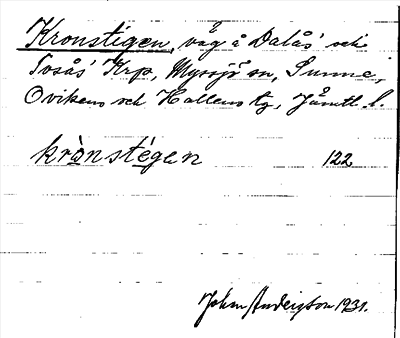 Kronstigen, väg å Dalås' och
Tosås' Krp, Myssjö sn, Sunne,
Ovikens och Hallens tg, Jämtl. l.
krònstégen 122
Johan Anderzson 1931.